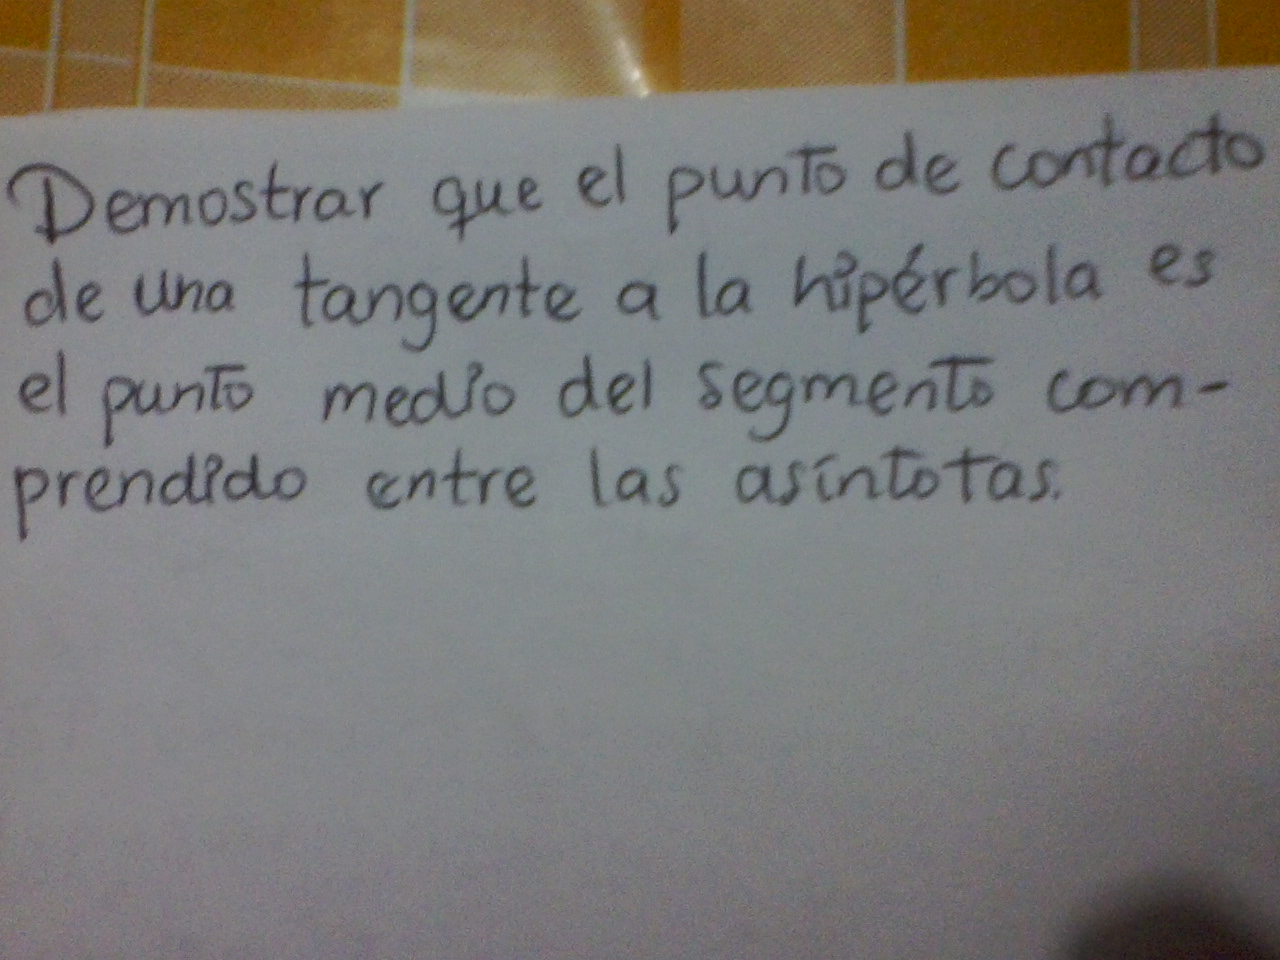 Demostrar que el punto de contacto
de una tangente a la hipérbola es
el punto medio del segmento com-
prendido entre las asíntotas.